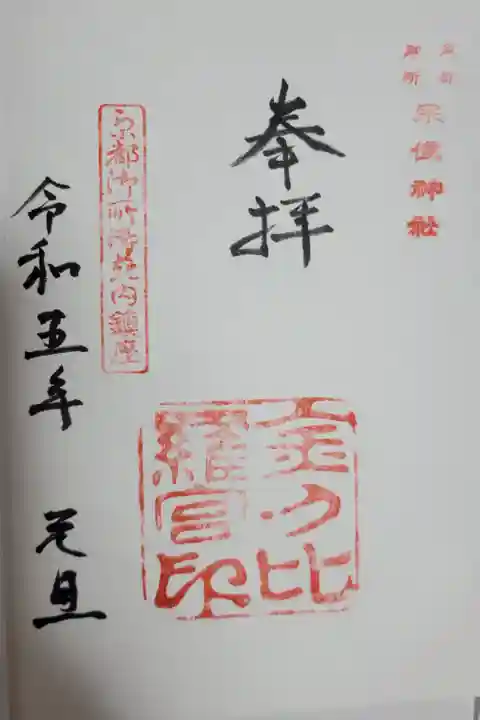 御所
宗像神社
奉拝
金刀比
羅宮印
京都御所御苑内鎮座
令和五年 元旦